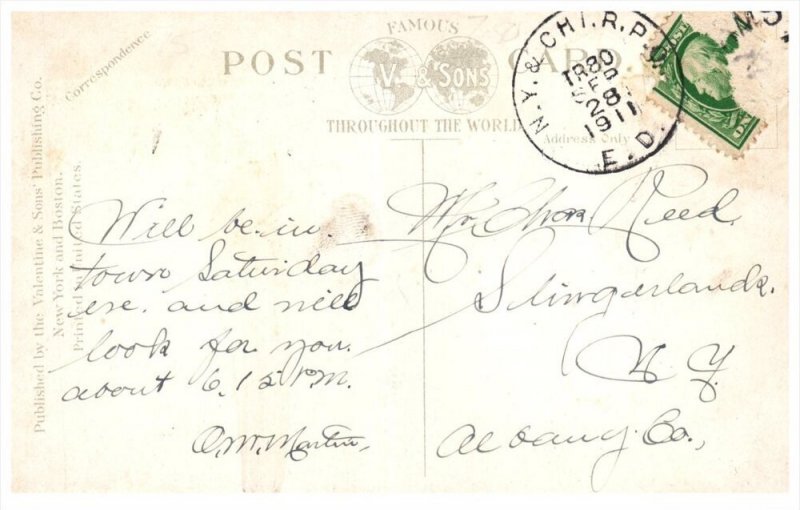 FAMOUS
POST CARD
V. & SONS
THROUGHOUT THE WORLD
Address Only
Correspondence
Published by the Valentine & Sons' Publishing Co.
New York and Boston.
Printed in United States.
N.Y. & CHI. R.P.O.
TR 80
FEB
28
1911
E.D.
Will be in
town Saturday
eve. and will
look for you
about 6.15 PM.
O.W. Martin,
Mr. Chas Reed
Slingerlands.
N Y.
Albany Co.,